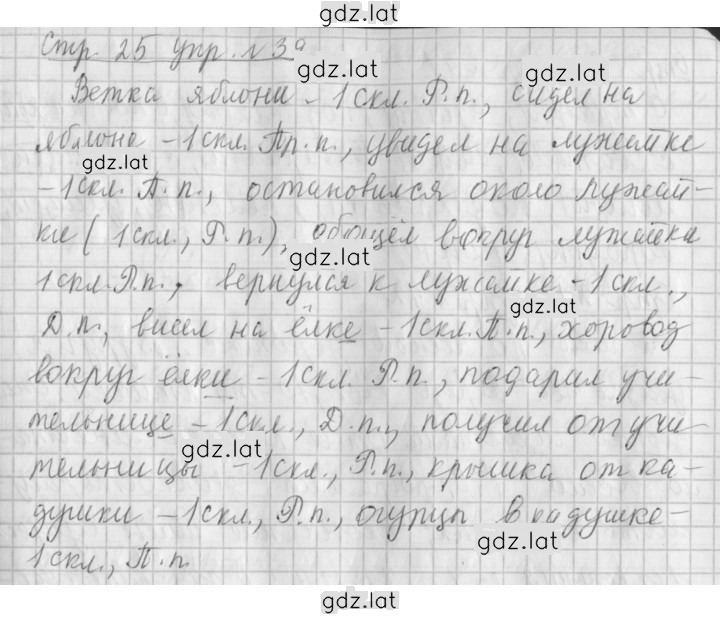 gdz.lat
Стр. 25 упр. №3а
gdz.lat
Ветка яблони - 1скл. Р.п., сидел на
яблоне - 1скл. Пр.п., увидел на лужайке
gdz.lat
- 1скл. П.п., остановился около лужай-
ки (1скл., Р.п.), обошёл вокруг лужайки
gdz.lat
1скл.Р.п., вернулся к лужайке - 1скл.,
gdz.lat
Д.п., висел на ёлке - 1скл.П.п., хоровод
вокруг ёлки - 1скл. Р.п., подарил учи-
тельнице - 1скл., Д.п., получил от учи-
gdz.lat
тельницы - 1скл., Р.п., крышка от ка-
душки - 1скл., Р.п., огурцы в кадушке -
gdz.lat
1скл., П.п.
gdz.lat